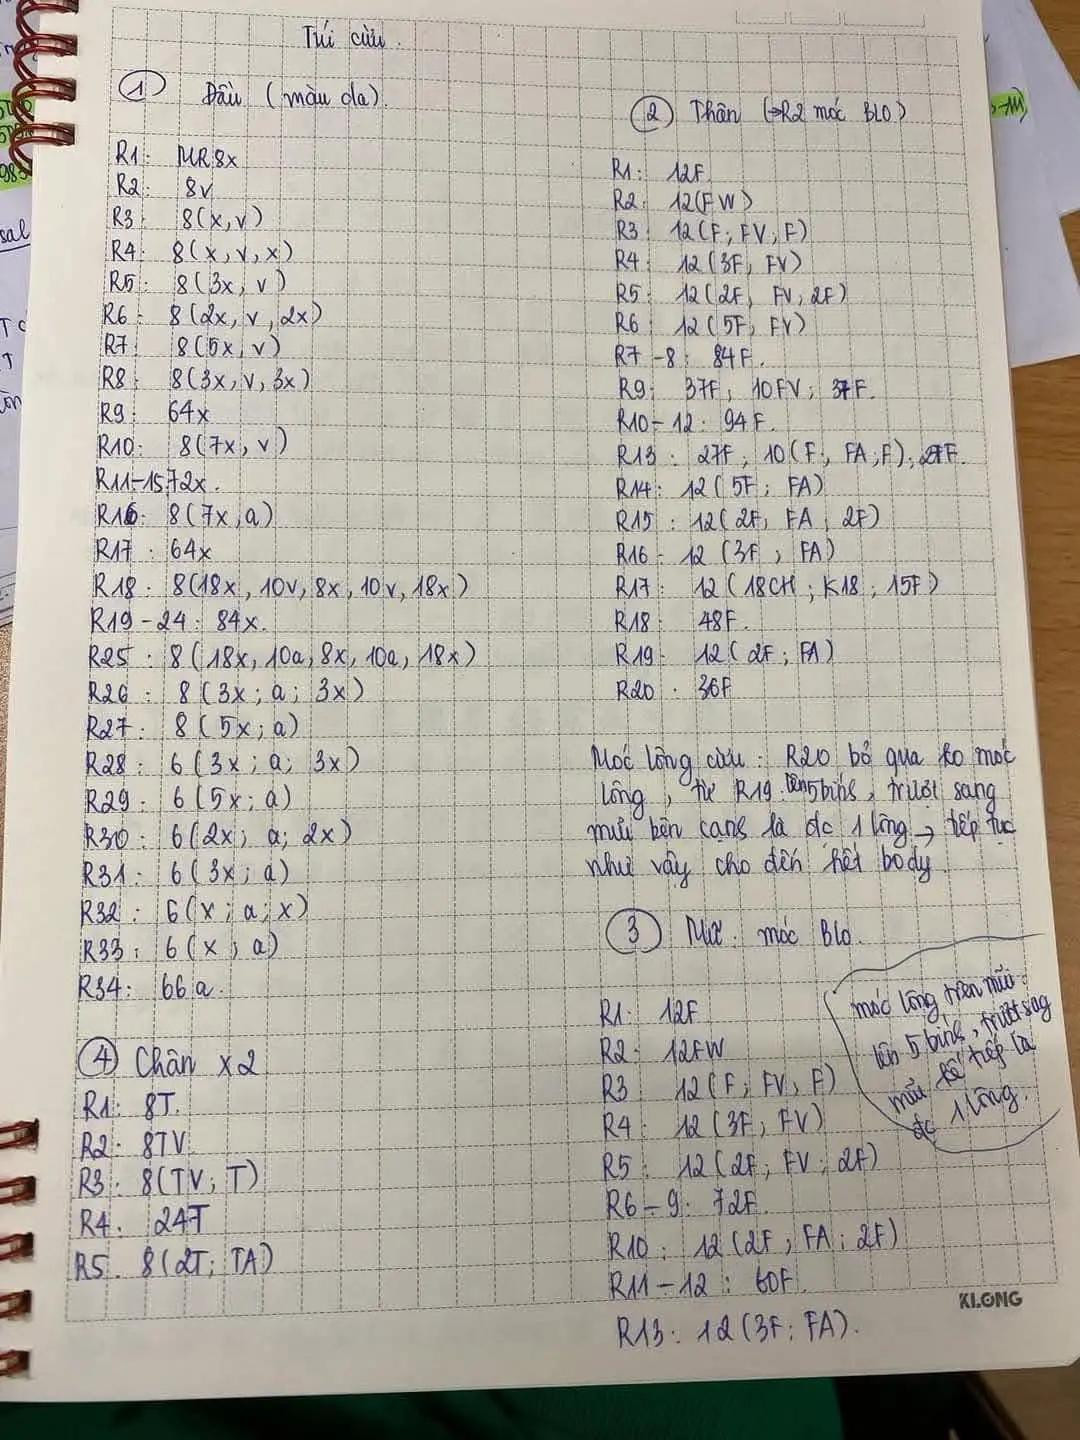 Túi cừu.
① Đầu (màu da).
R1: MR 8x
R2: 8v
R3: 8(x, v)
R4: 8(x, v, x)
R5: 8(3x, v)
R6: 8(2x, v, 2x)
R7: 8(5x, v)
R8: 8(3x, v, 3x)
R9: 64x
R10: 8(7x, v)
R11-15: 72x.
R16: 8(7x, a)
R17: 64x
R18: 8(18x, 10v, 8x, 10v, 18x)
R19-24: 84x.
R25: 8(18x, 10a, 8x, 10a, 18x)
R26: 8(3x; a; 3x)
R27: 8(5x; a)
R28: 6(3x; a; 3x)
R29: 6(5x; a)
R30: 6(2x; a; 2x)
R31: 6(3x; a)
R32: 6(x; a; x)
R33: 6(x; a)
R34: 66a.
④ Chân x2
R1: 8T.
R2: 8TV
R3: 8(TV; T)
R4: 24T
R5. 8(2T; TA)
② Thân (→R2 móc BLO)
R1: 12F
R2: 12(FW)
R3: 12(F; FV; F)
R4: 12(3F, FV)
R5: 12(2F, FV, 2F)
R6: 12(5F, FV)
R7-8: 84F.
R9: 37F, 10FV; 37F.
R10-12: 94F.
R13: 27F; 10(F; FA; F); 27F.
R14: 12(5F; FA)
R15: 12(2F, FA, 2F)
R16- 12(3F, FA)
R17: 12(18CH; K18; 15F)
R18: 48F.
R19: 12(2F; FA)
R20. 36F
Móc lông cừu: R20 bỏ qua ko móc
lông, từ R19 lên 5 bính, trượt sang
mũi bên cạnh là đc 1 lông → tiếp tục
như vậy cho đến hết body.
③ móc Blo.
R1: 12F
R2: 12FW
R3 12(F; FV, F)
R4: 12(3F, FV)
R5: 12(2F; FV; 2F)
R6-9: 72F.
R10: 12(2F, FA; 2F)
R11-12: 60F.
R13: 12(3F; FA).
móc lông trên mũi:
lên 5 bính, trượt sag
mũi kế tiếp là
đc 1 lông.
KLONG